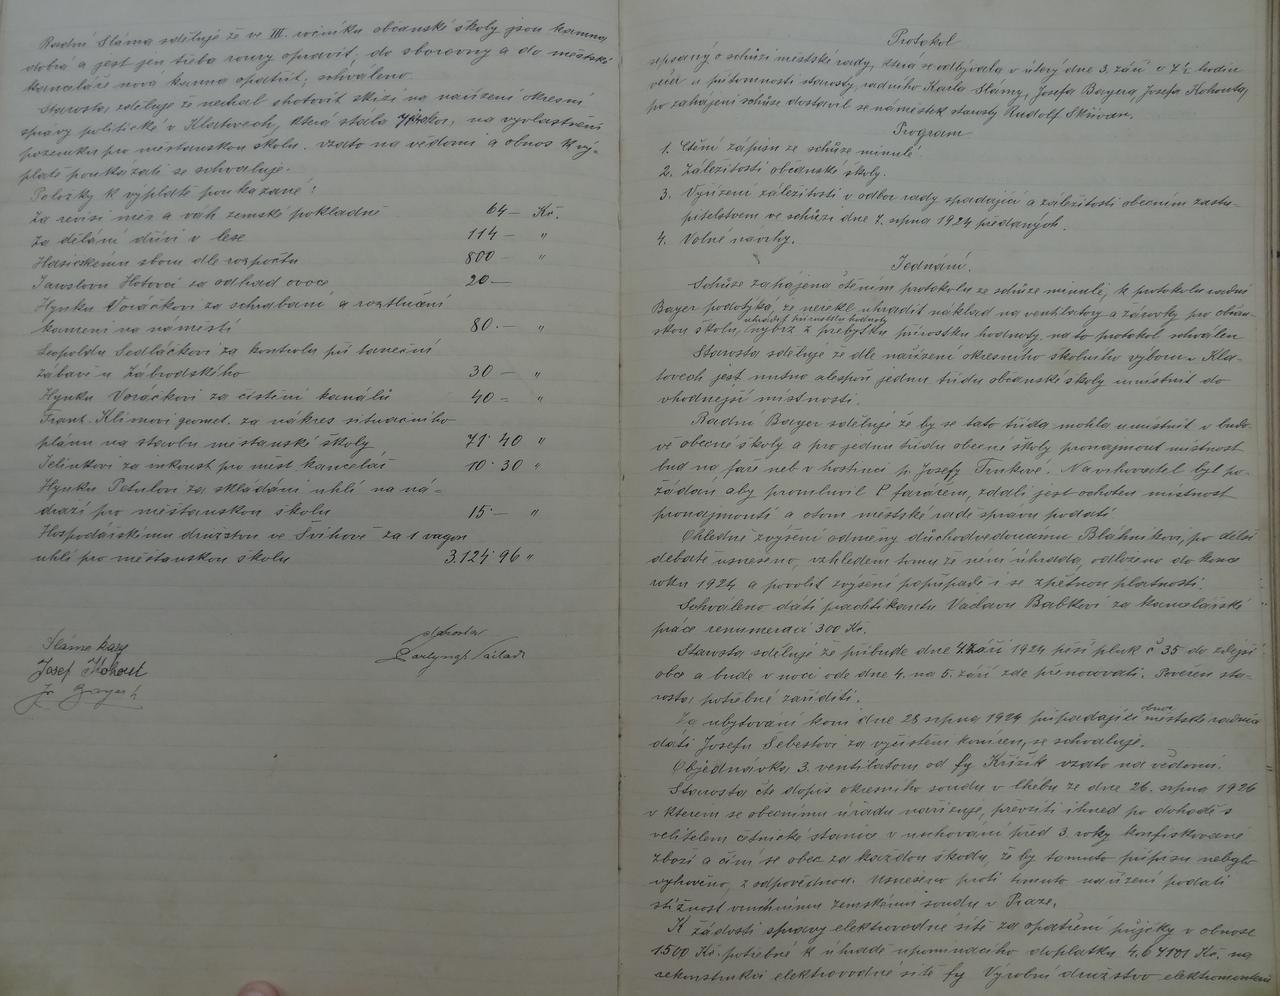 Radní Sláma sděluje že ve III. ročníku občanské školy jsou kamna
dobrá a jest jen třeba roury opraviti, do sborovny a do městské
kanceláře nová kamna opatřit, schváleno.
Starosta, sděluje že nechal zhotoviti skizi na nařízení okresní
správy politické v Klatovech, která stála Kč, na vyvlastnění
pozemku pro měšťanskou školu. vzato na vědomí a obnos k vý-
platě poukázati se schvaluje.
Položky k výplatě poukázané:
Za revisi měr a váh zemské pokladně 64— Kč.
Za dělání dříví v lese 114— "
Hasičskému sboru dle rozpočtu 800— "
Jaroslavu Hotovci za odhad ovoce 20—
Hynku Voráčkovi za schrabání a roztlučení
kamení na náměstí 80.— "
Leopoldu Sedláčkovi za kontrolu při taneční
zábavě u Zábrodského 30— "
Hynku Voráčkovi za čistění kanálů 40= "
Frant. Klimovi geomet. za nákres situačního
plánu na stavbu měšťanské školy 71·40 "
Jelínkovi za inkoust pro měst. kancelář 10·30 "
Hynku Petulovi za skládání uhlí na ná-
draží pro měšťanskou školu 15·— "
Hospodářskému družstvu ve Švihově za 1 vagon
uhlí pro měšťanskou školu 3.124·96 "
Sláma Karel
Josef Kohout
Jos. Bayer
starosta
Protokol
sepsaný o schůzi městské rady, která se odbývala v úterý dne 3. září o 7½ hodin
večer u přítomnosti starosty, radního Karla Slámy, Josefa Bayera, Josefa Kohouta,
po zahájení schůze dostavil se náměstek starosty Rudolf Skřivan.
Program
1. Čtění zápisu ze schůze minulé.
2. Záležitosti občanské školy.
3. Vyřízení záležitostí v odbor rady spadající a záležitosti obecním zastu-
pitelstvem ve schůzi dne 7. srpna 1924 předaných.
4. Volné návrhy.
Jednání.
Schůze zahájena čtením protokolu ze schůze minulé, k protokolu radní
Bayer podotýká, že neřekl uhraditi náklad na ventilátory a žárovky pro občan-
skou školu, nýbrž z přebytku přírostku hodnoty. na to protokol schválen
Starosta sděluje že dle nařízení okresního školního výboru v Kla-
tovech jest nutno alespoň jednu třídu občanské školy umístniti do
vhodnější místnosti.
Radní Bayer sděluje že by se tato třída mohla umístniti v budo-
vě obecné školy a pro jednu třídu obecné školy pronajmout místnost
buď na faře neb v hostinci p. Josefy Turkové. Navrhovatel byl po-
žádán aby promluvil s P. farářem, zdali jest ochoten místnost
pronajmouti a otom městské radě zprávu podati.
Ohledně zvýšení odměny důchodvedoucímu Bláhníkovi, po delší
debatě usneseno, vzhledem tomu že není úhrada, odloženo do konce
roku 1924 a povoliti zvýšení popřípadě i se zpětnou platností.
Schváleno dáti praktikantu Václavu Babkovi za kancelářské
práce renumeraci 300 Kč.
Starosta sděluje že přibude dne 4. září 1924 pěší pluk č 35 do zdejší
obce a bude v noci ode dne 4. na 5. září zde přenocovati. Pověřen sta-
rosta, potřebné zaříditi.
Za ubytování koní dne 28 srpna 1924 připadající obnos městské radnici
dáti Josefu Šebestovi za vyčistění koníren, se schvaluje.
Objednávka 3. ventilátorů od fy Křižík vzato na vědomí.
Starosta čte dopis okresního soudu v Chebu ze dne 26. srpna 1926
v kterém se obecnímu úřadu nařizuje, převzíti ihned po dohodě s
velitelem četnické stanice v uschování před 3. roky konfiskované
zboží a činí se obec za každou škodu, že by tomuto přípisu nebylo
vyhověno, zodpovědnou. Usneseno proti tomuto nařízení podati
stížnost vrchnímu zemskému soudu v Praze.
K žádosti správy elektrovodné sítě za opatření půjčky v obnose
1500 Kč. potřebné k úhradě upomínacího doplatku Kč. na
rekonstrukci elektrovodné sítě fy Výrobní družstvo elektromontérů